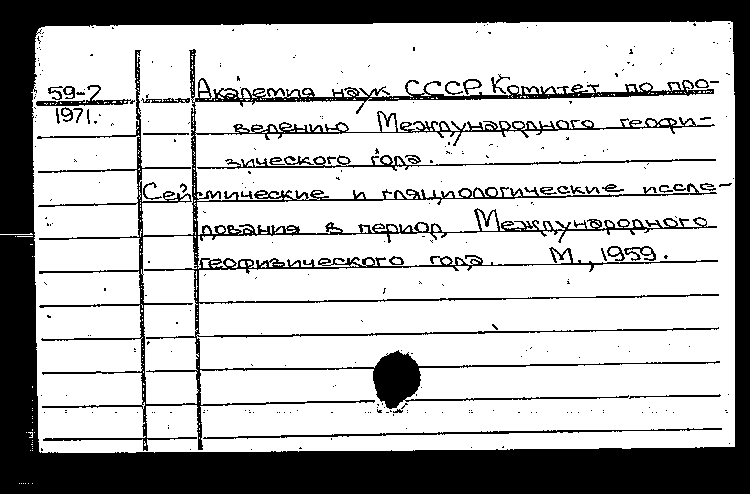 59-7 Академия наук СССР. Комитет по про-
1971. ведению Международного геофи-
зического года.
Сейсмические и гляциологические иссле-
дования в период Международного
геофизического года. М., 1959.